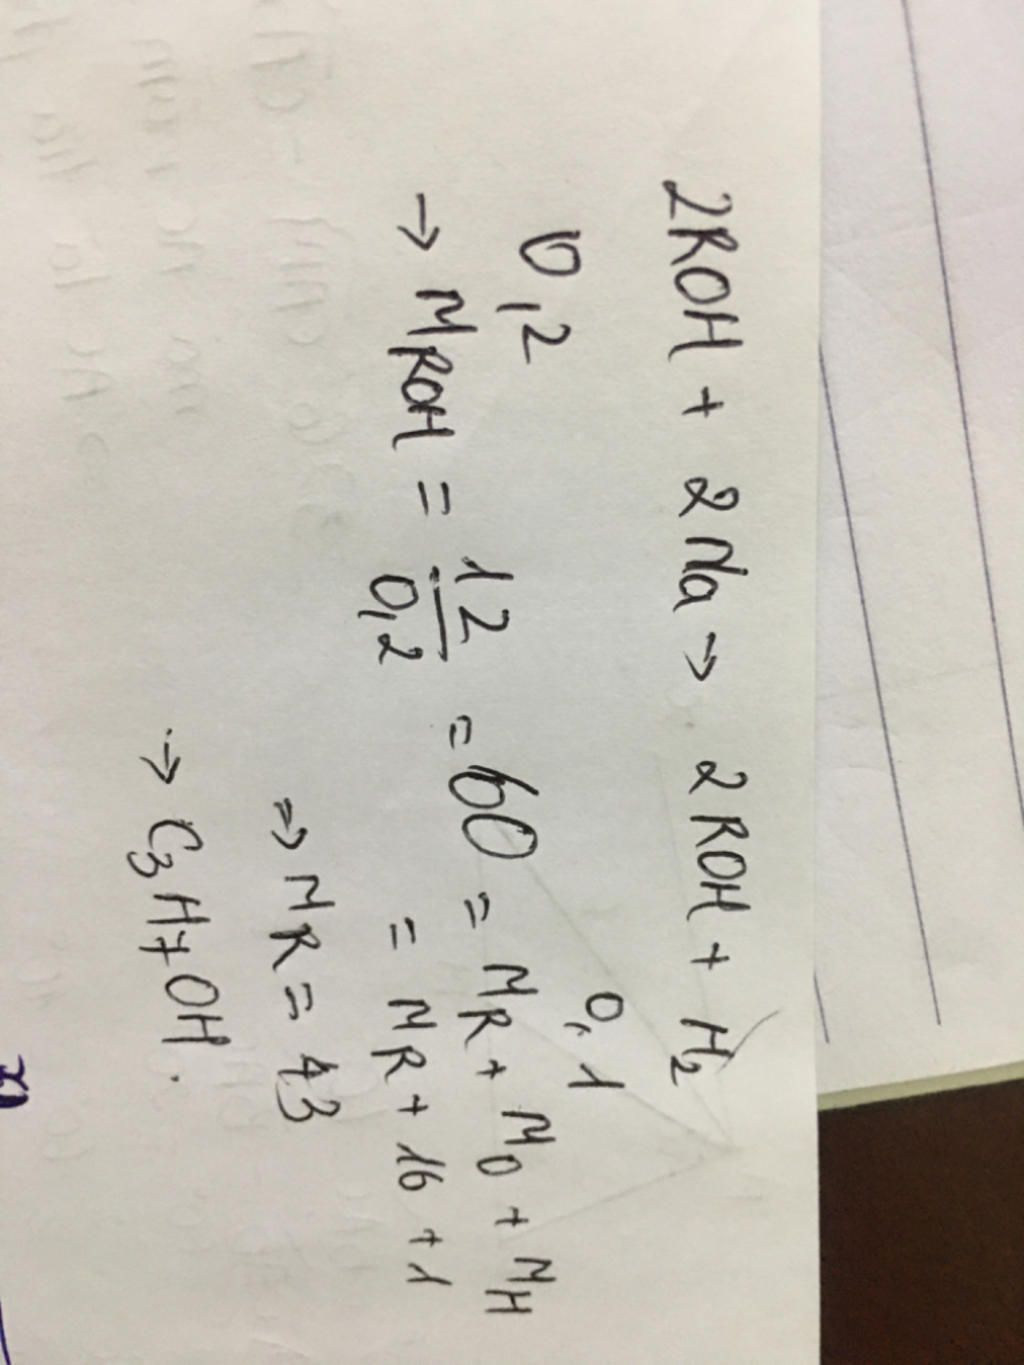 2ROH + 2Na → 2ROH + H₂
0,2 0,1
→ M_ROH = 12/0,2 = 60 = M_R + M_O + M_H
= M_R + 16 + 1
⇒ M_R = 43
→ C₃H₇OH.